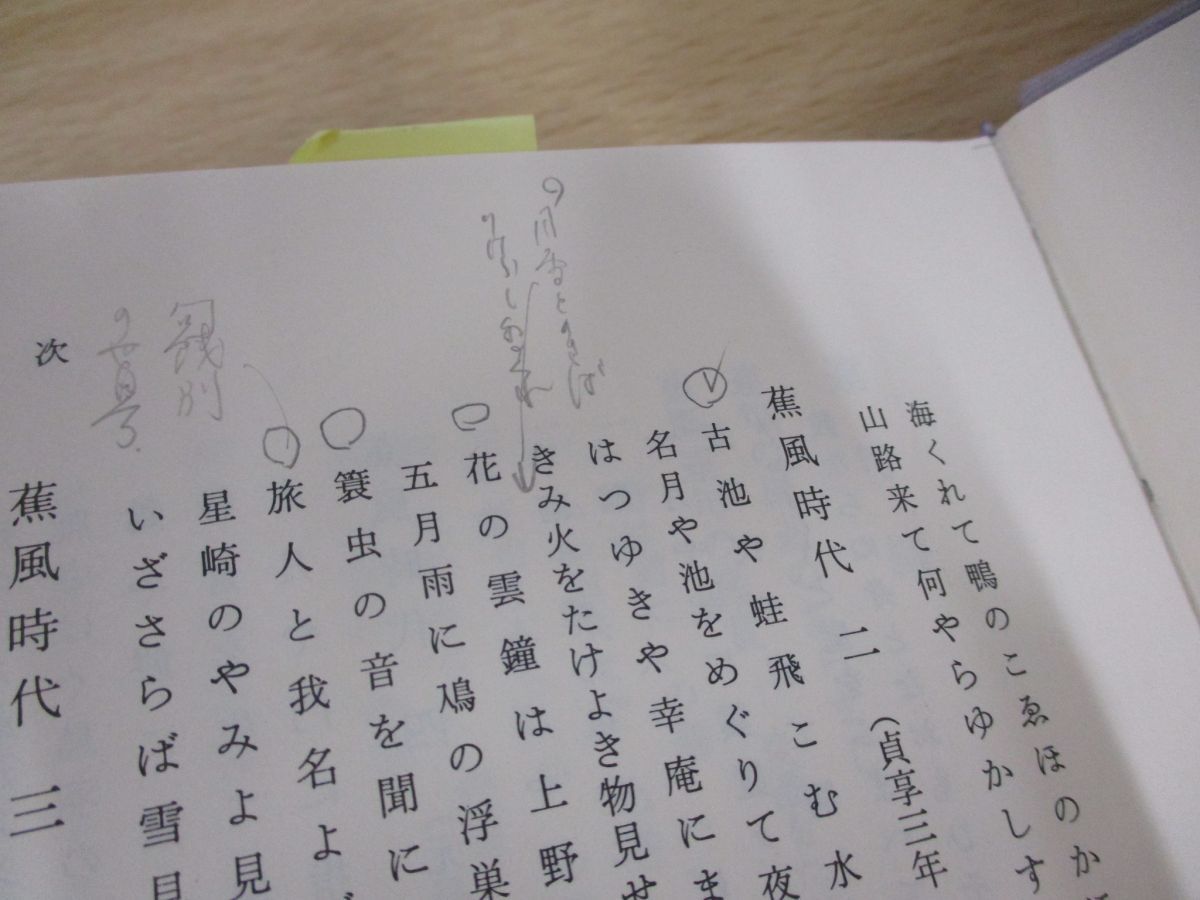 海くれて鴨のこゑほのか
山路来て何やらゆかしす
蕉風時代 二 (貞享三年
古池や蛙飛こむ水
名月や池をめぐりて夜
はつゆきや幸庵にま
きみ火をたけよき物見せ
花の雲鐘は上野
五月雨に鳰の浮巣
簑虫の音を聞に
旅人と我名よ
星崎のやみよ見
いざさらば雪見
餞別
蕉風時代 三
次